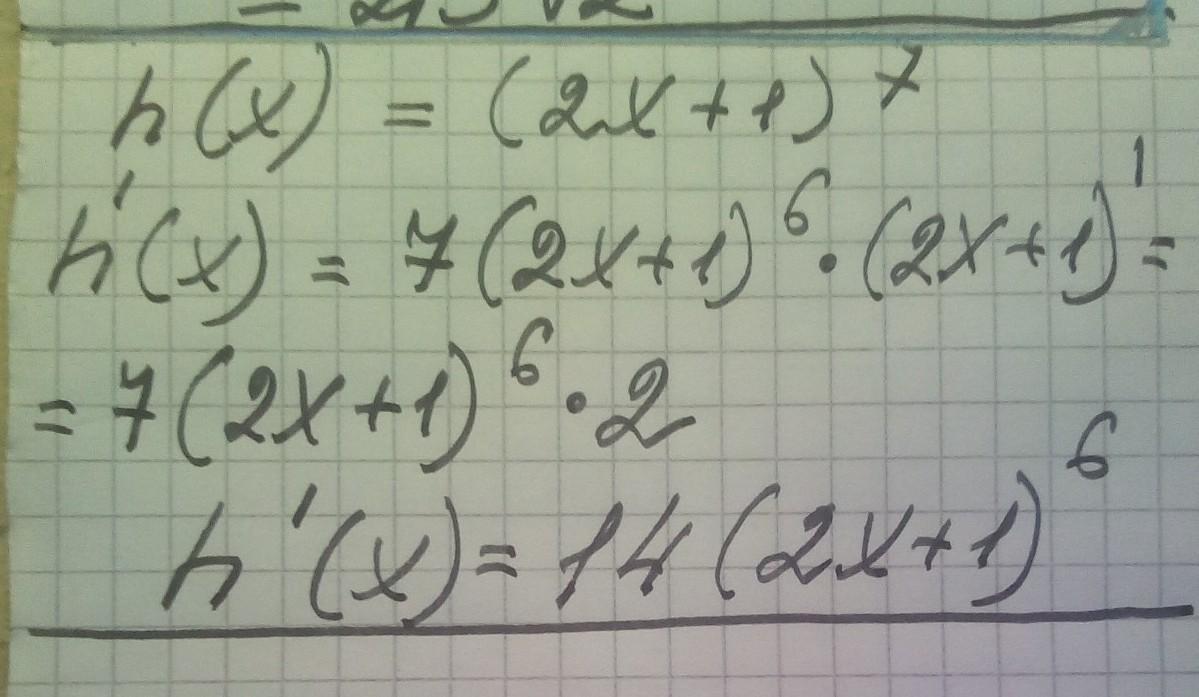 h(x) = (2x+1)⁷
h'(x) = 7(2x+1)⁶ · (2x+1)' =
= 7(2x+1)⁶ · 2
h'(x) = 14(2x+1)⁶